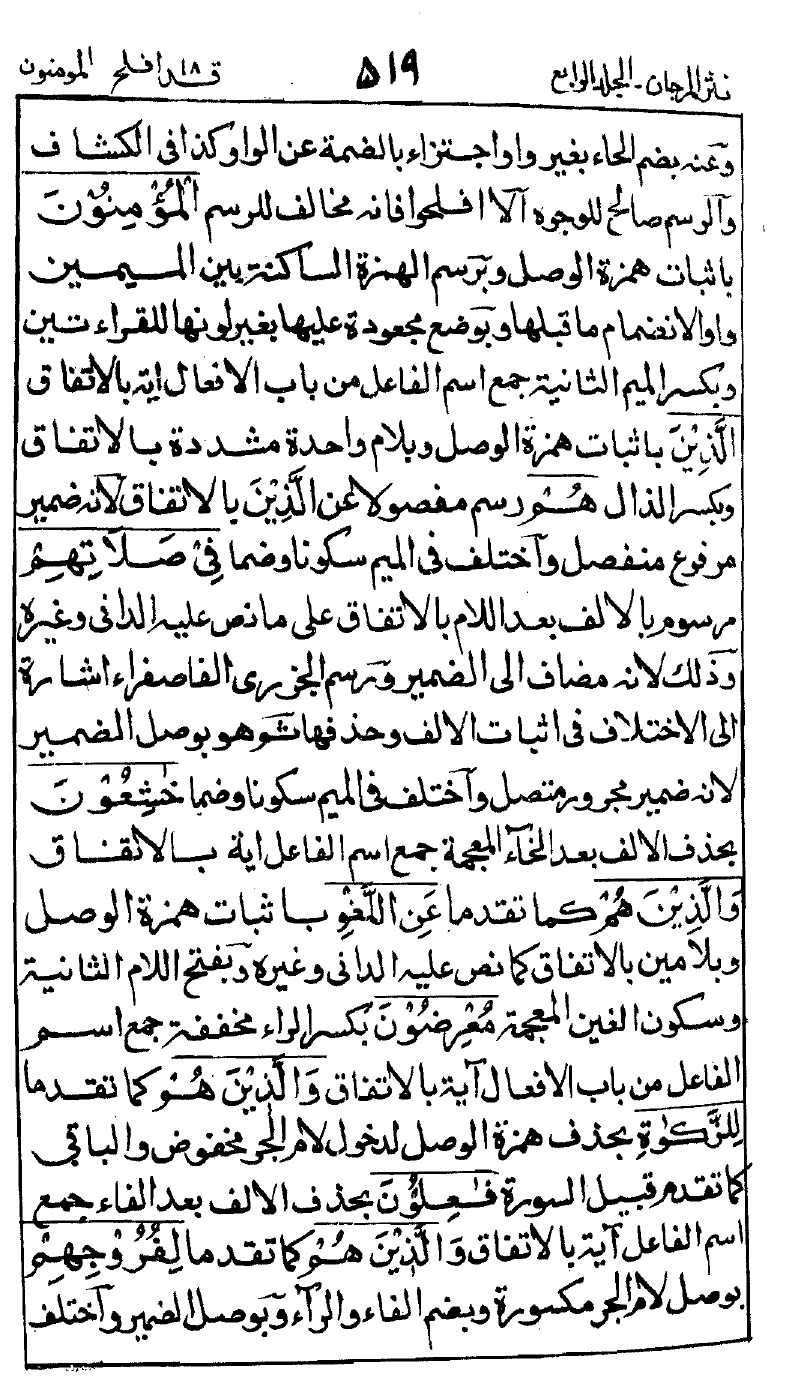 نثر المرجان - الجلد الرابع ٥١٩ قد افلح ١٨ المومنون
وعنه بضم الحاء بغير واو اجتزاء بالضمة عن الواو كذا فى الكشاف
والرسم صالح للوجوه الا افلحوا فانه مخالف للرسم الْمُؤْمِنُوْنَ
باثبات همزة الوصل وبرسم الهمزة الساكنة بين الميمين
واوا لانضمام ما قبلها وبوضع مجعودة عليها بغير لونها للقراءتين
وبكسر الميم الثانية جمع اسم الفاعل من باب الافعال اية بالاتفاق
الَّذِيْنَ باثبات همزة الوصل وبلام واحدة مشددة بالاتفاق
وبكسر الذال هُمْ رسم مفصولا عن الَّذِيْنَ بالاتفاق لانه ضمير
مرفوع منفصل واختلف فى الميم سكونا وضما فِيْ صَلَاتِهِمْ
مرسوم بالالف بعد اللام بالاتفاق على ما نص عليه الدانى وغيره
وذلك لانه مضاف الى الضمير ورسم الجزرى الفا صفراء اشارة
الى الاختلاف فى اثبات الالف وحذفها ثم هو بوصل الضمير
لانه ضمير مجرور متصل واختلف فى الميم سكونا وضما خٰشِعُوْنَ
بحذف الالف بعد الخاء المعجمة جمع اسم الفاعل اية بالاتفاق
وَالَّذِيْنَ هُمْ كما تقدما عَنِ اللَّغْوِ باثبات همزة الوصل
وبلامين بالاتفاق كما نص عليه الدانى وغيره وبفتح اللام الثانية
وسكون الغين المعجمة مُعْرِضُوْنَ بكسر الراء مخففة جمع اسم
الفاعل من باب الافعال آية بالاتفاق وَالَّذِيْنَ هُمْ كما تقدما
لِلزَّكٰوةِ بحذف همزة الوصل لدخول لام الجر مخفوض والباقى
كما تقدم قبيل السورة فٰعِلُوْنَ بحذف الالف بعد الفاء جمع
اسم الفاعل آية بالاتفاق وَالَّذِيْنَ هُمْ كما تقدما لِفُرُوْجِهِمْ
بوصل لام الجر مكسورة وبضم الفاء والراء وبوصل الضمير واختلف